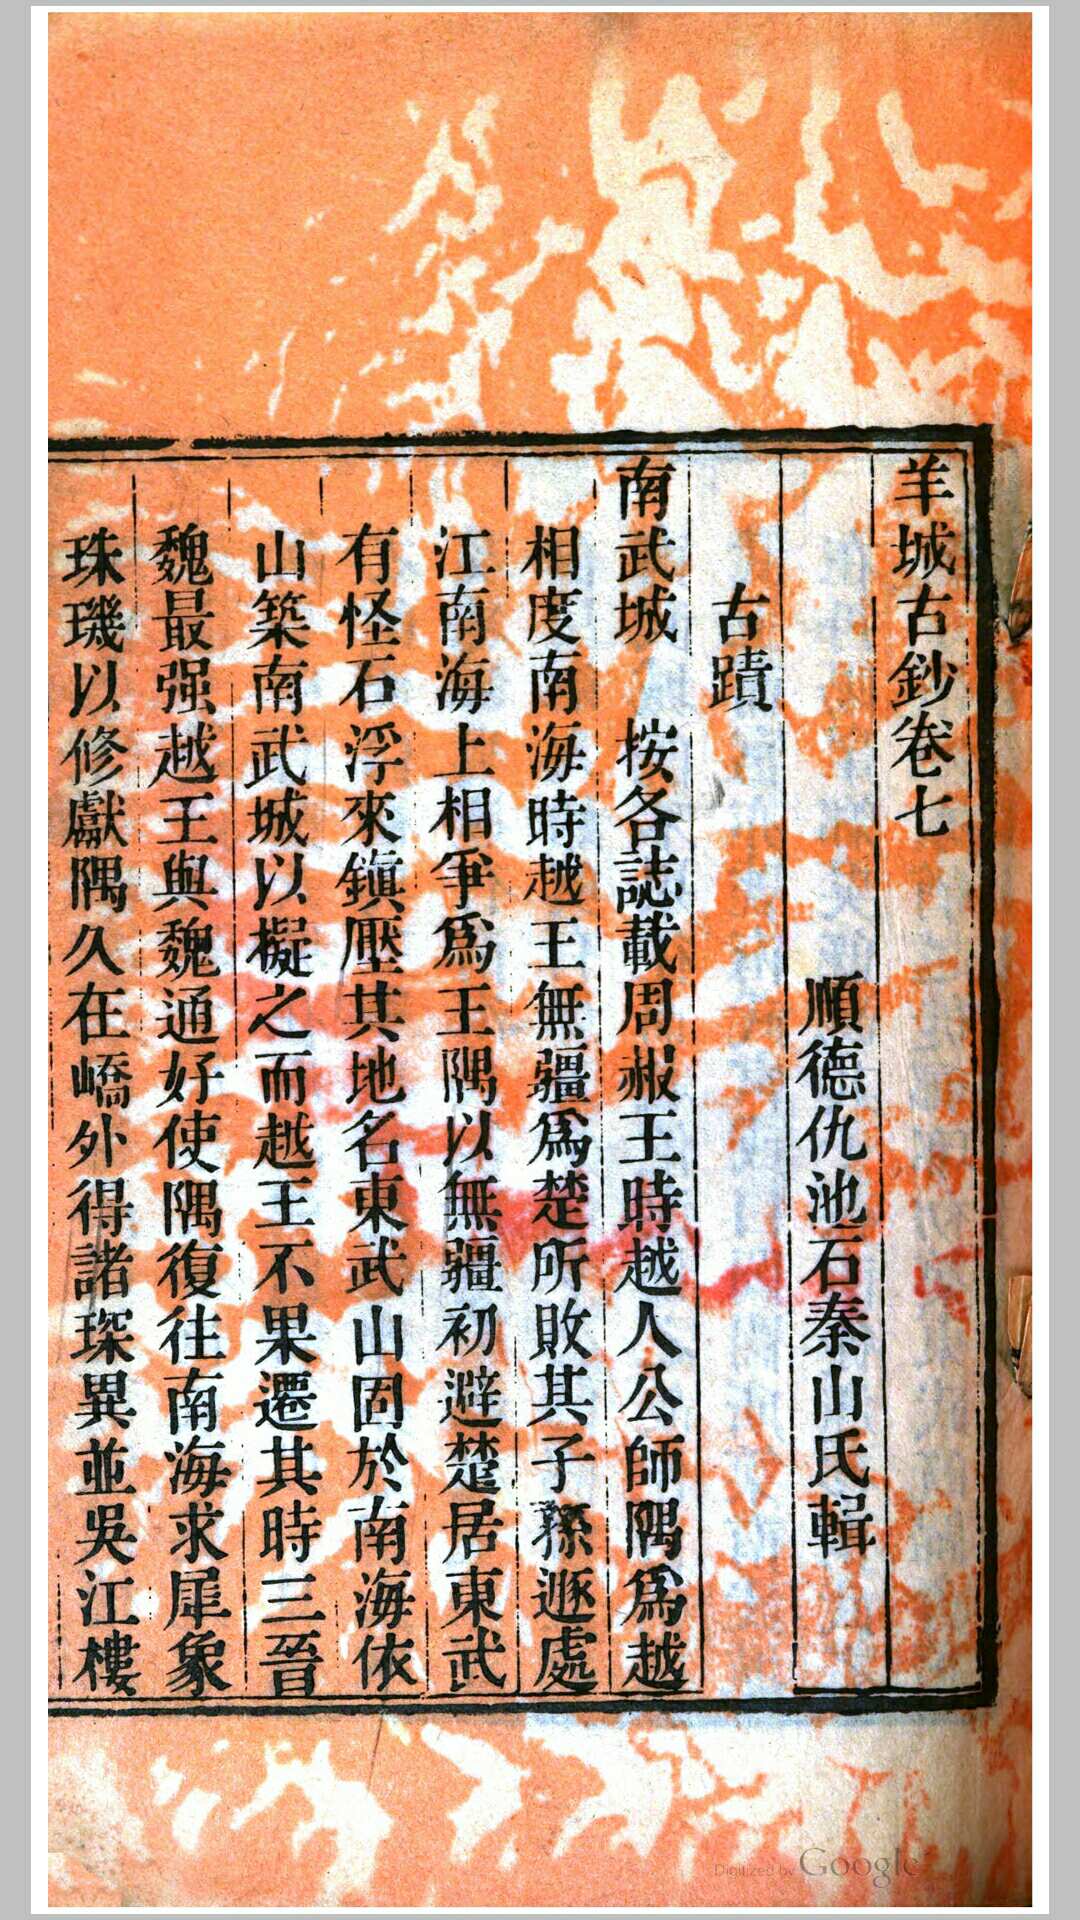 羊城古鈔卷七
順德仇池石秦山氏輯
古蹟
南武城 按各誌載周赧王時越人公師隅爲越
相度南海時越王無疆爲楚所敗其子孫遯處
江南海上相爭爲王隅以無疆初避楚居東武
有怪石浮來鎭壓其地名東武山固於南海依
山築南武城以擬之而越王不果遷其時三晉
魏最强越王與魏通好使隅復往南海求犀象
珠璣以修獻隅久在嶠外得諸琛異並吳江樓
Digitized by Google